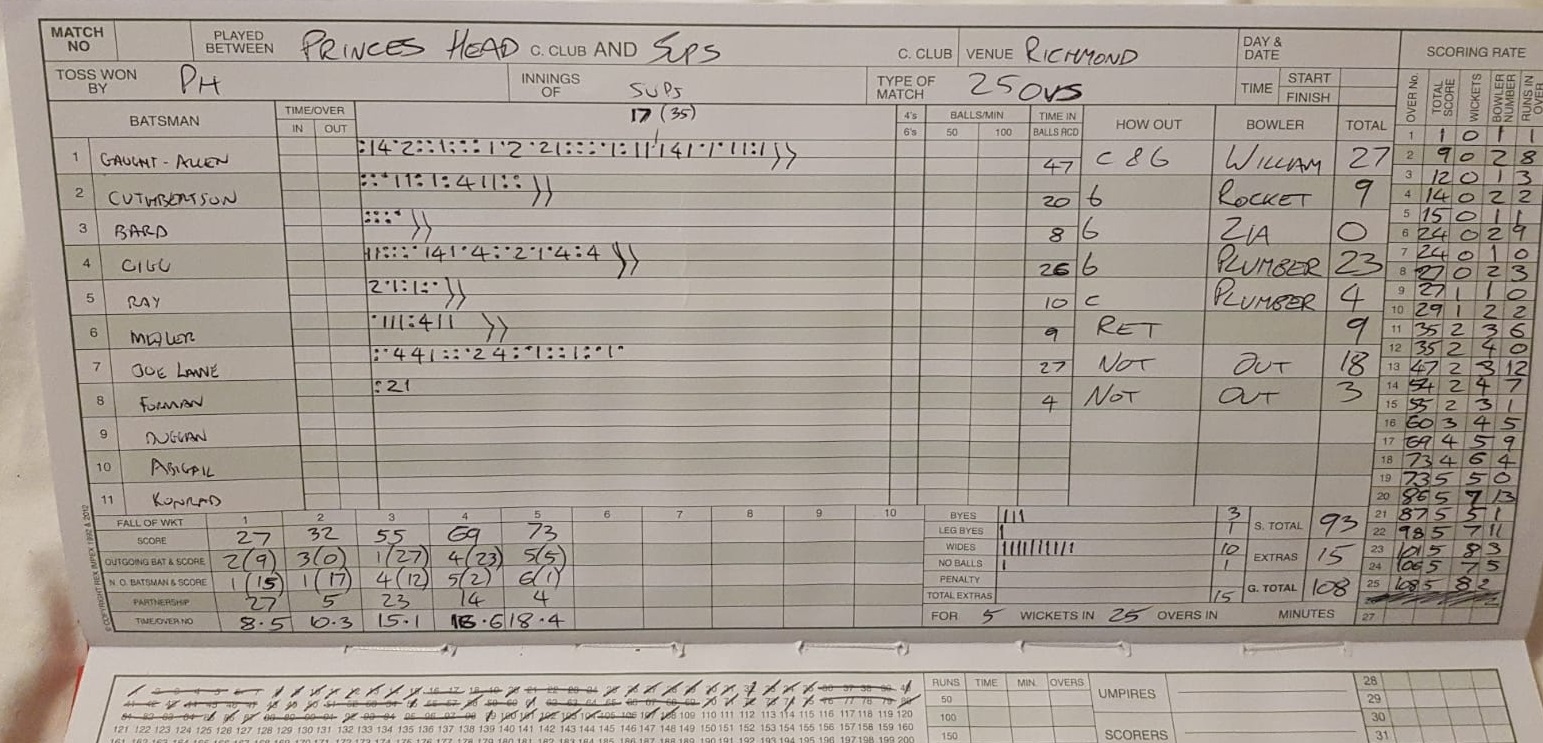 MATCH NO PLAYED BETWEEN PRINCES HEAD C. CLUB AND SUPS C. CLUB VENUE RICHMOND DAY & DATE SCORING RATE
TOSS WON BY PH INNINGS OF SUPS TYPE OF MATCH 25 OVS TIME START FINISH
OVER No. TOTAL SCORE WICKETS BOWLER NUMBER RUNS IN OVER
BATSMAN TIME/OVER IN OUT 17 (35) 4's 6's BALLS/MIN 50 100 TIME IN BALLS RCD HOW OUT BOWLER TOTAL
1 GAUGHT-ALLEN 47 C & B WILLIAM 27
2 CUTHBERTSON 20 b ROCKET 9
3 BARD 8 b ZIA 0
4 GIGG 26 b PLUMBER 23
5 RAY 10 C PLUMBER 4
6 9 RET 9
7 JOE LANNE 27 NOT OUT 18
8 FORMAN 4 NOT OUT 3
9 DUGGAN
10 ABIGAIL
11 KONRAD
1 1 0 1 1
2 9 0 2 8
3 12 0 1 3
4 14 0 2 2
5 15 0 1 1
6 24 0 2 9
7 24 0 1 0
8 27 0 2 3
9 27 1 1 0
10 29 1 2 2
11 35 2 3 6
12 35 2 4 0
13 47 2 3 12
14 54 2 4 7
15 55 2 3 1
16 60 3 4 5
17 69 4 5 9
18 73 4 6 4
19 73 5 5 0
20 86 5 7 13
21 87 5 5 1
22 98 5 7 11
23 101 5 8 3
24 106 5 7 5
25 108 5 8 2
27
FALL OF WKT 1 2 3 4 5 6 7 8 9 10
SCORE 27 32 55 69 73
OUTGOING BAT & SCORE 2(9) 3(0) 1(27) 4(23) 5(5)
N.O. BATSMAN & SCORE 1(15) 1(17) 4(12) 5(2) 6(1)
PARTNERSHIP 27 5 23 14 4
TIME/OVER NO 8.5 10.3 15.1 16.6 18.4
BYES 3
LEG BYES 1
WIDES 10
NO BALLS 1
PENALTY
TOTAL EXTRAS 15
S. TOTAL 93
EXTRAS 15
G. TOTAL 108
FOR 5 WICKETS IN 25 OVERS IN MINUTES
© COPYRIGHT REX IMPEX 1992 & 2012
109 110 111 112 113 114 115 116 117 118 119 120
121 122 123 124 125 126 127 128 129 130 131 132 133 134 135 136 137 138 139 140 141 142 143 144 145 146 147 148 149 150 151 152 153 154 155 156 157 158 159 160
RUNS TIME MIN. OVERS
50
100
150
UMPIRES
SCORERS
28
29
30
31